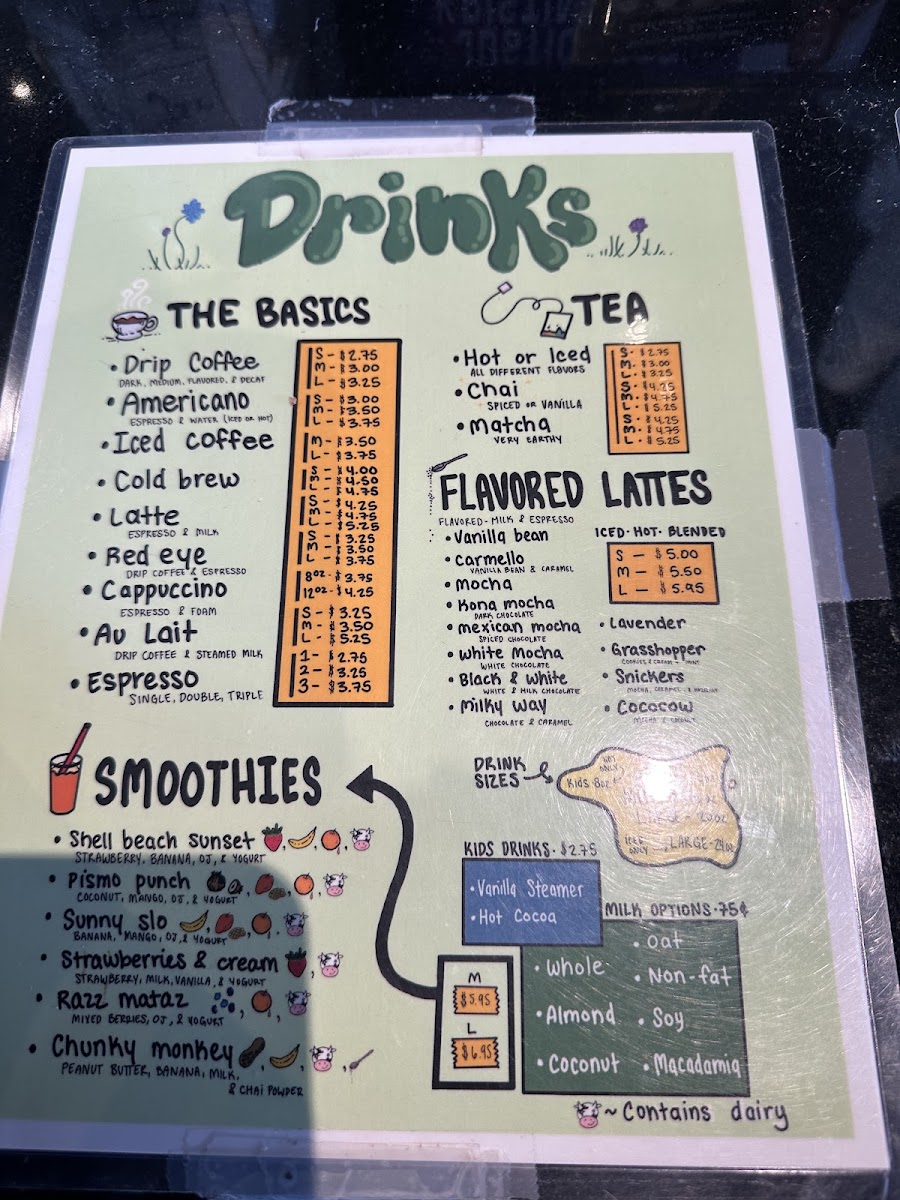 Drinks
THE BASICS
• Drip Coffee
DARK, MEDIUM, FLAVORED, & DECAF
S - $2.75
M - $3.00
L - $3.25
• Americano
ESPRESSO & WATER (ICED OR HOT)
S - $3.00
M - $3.50
L - $3.75
• Iced coffee
M - $3.50
L - $3.75
• Cold brew
S - $4.00
M - $4.50
L - $4.75
• Latte
ESPRESSO & MILK
S - $4.25
M - $4.75
L - $5.25
• Red eye
DRIP COFFEE & ESPRESSO
S - $3.25
M - $3.50
L - $3.75
• Cappuccino
ESPRESSO & FOAM
8oz - $3.75
12oz - $4.25
• Au Lait
DRIP COFFEE & STEAMED MILK
S - $3.25
M - $3.50
L - $5.25
• Espresso
SINGLE, DOUBLE, TRIPLE
1 - $2.75
2 - $3.25
3 - $3.75
TEA
• Hot or Iced
ALL DIFFERENT FLAVORS
S - $2.75
M - $3.00
L - $3.25
• Chai
SPICED OR VANILLA
S - $4.25
M - $4.75
L - $5.25
• Matcha
VERY EARTHY
S - $4.25
M - $4.75
L - $5.25
FLAVORED LATTES
FLAVORED - MILK & ESPRESSO
ICED - HOT - BLENDED
S — $5.00
M — $5.50
L — $5.95
• Vanilla bean
• carmello
VANILLA BEAN & CARAMEL
• mocha
• Kona mocha
DARK CHOCOLATE
• mexican mocha
SPICED CHOCOLATE
• white mocha
WHITE CHOCOLATE
• Black & white
WHITE & MILK CHOCOLATE
• milky way
CHOCOLATE & CARAMEL
• Lavender
• Grasshopper
COOKIES & CREAM + MINT
• Snickers
MOCHA, CARAMEL &
• Cococow
SMOOTHIES
• Shell beach sunset
STRAWBERRY, BANANA, OJ, & YOGURT
• Pismo punch
COCONUT, MANGO, OJ, & YOGURT
• Sunny slo
BANANA, MANGO, OJ, & YOGURT
• Strawberries & cream
STRAWBERRY, MILK, VANILLA, & YOGURT
• Razz mataz
MIXED BERRIES, OJ, & YOGURT
• Chunky monkey
PEANUT BUTTER, BANANA, MILK,
& CHAI POWDER
M
$5.95
L
$6.95
DRINK
SIZES
HOT
ONLY
Kids 8oz
20oz
ICED
ONLY
LARGE - 24oz
KIDS DRINKS - $2.75
• Vanilla Steamer
• Hot Cocoa
MILK OPTIONS - 75¢
• Whole
• Almond
• Coconut
• oat
• Non-fat
• Soy
• Macadamia
~ Contains dairy